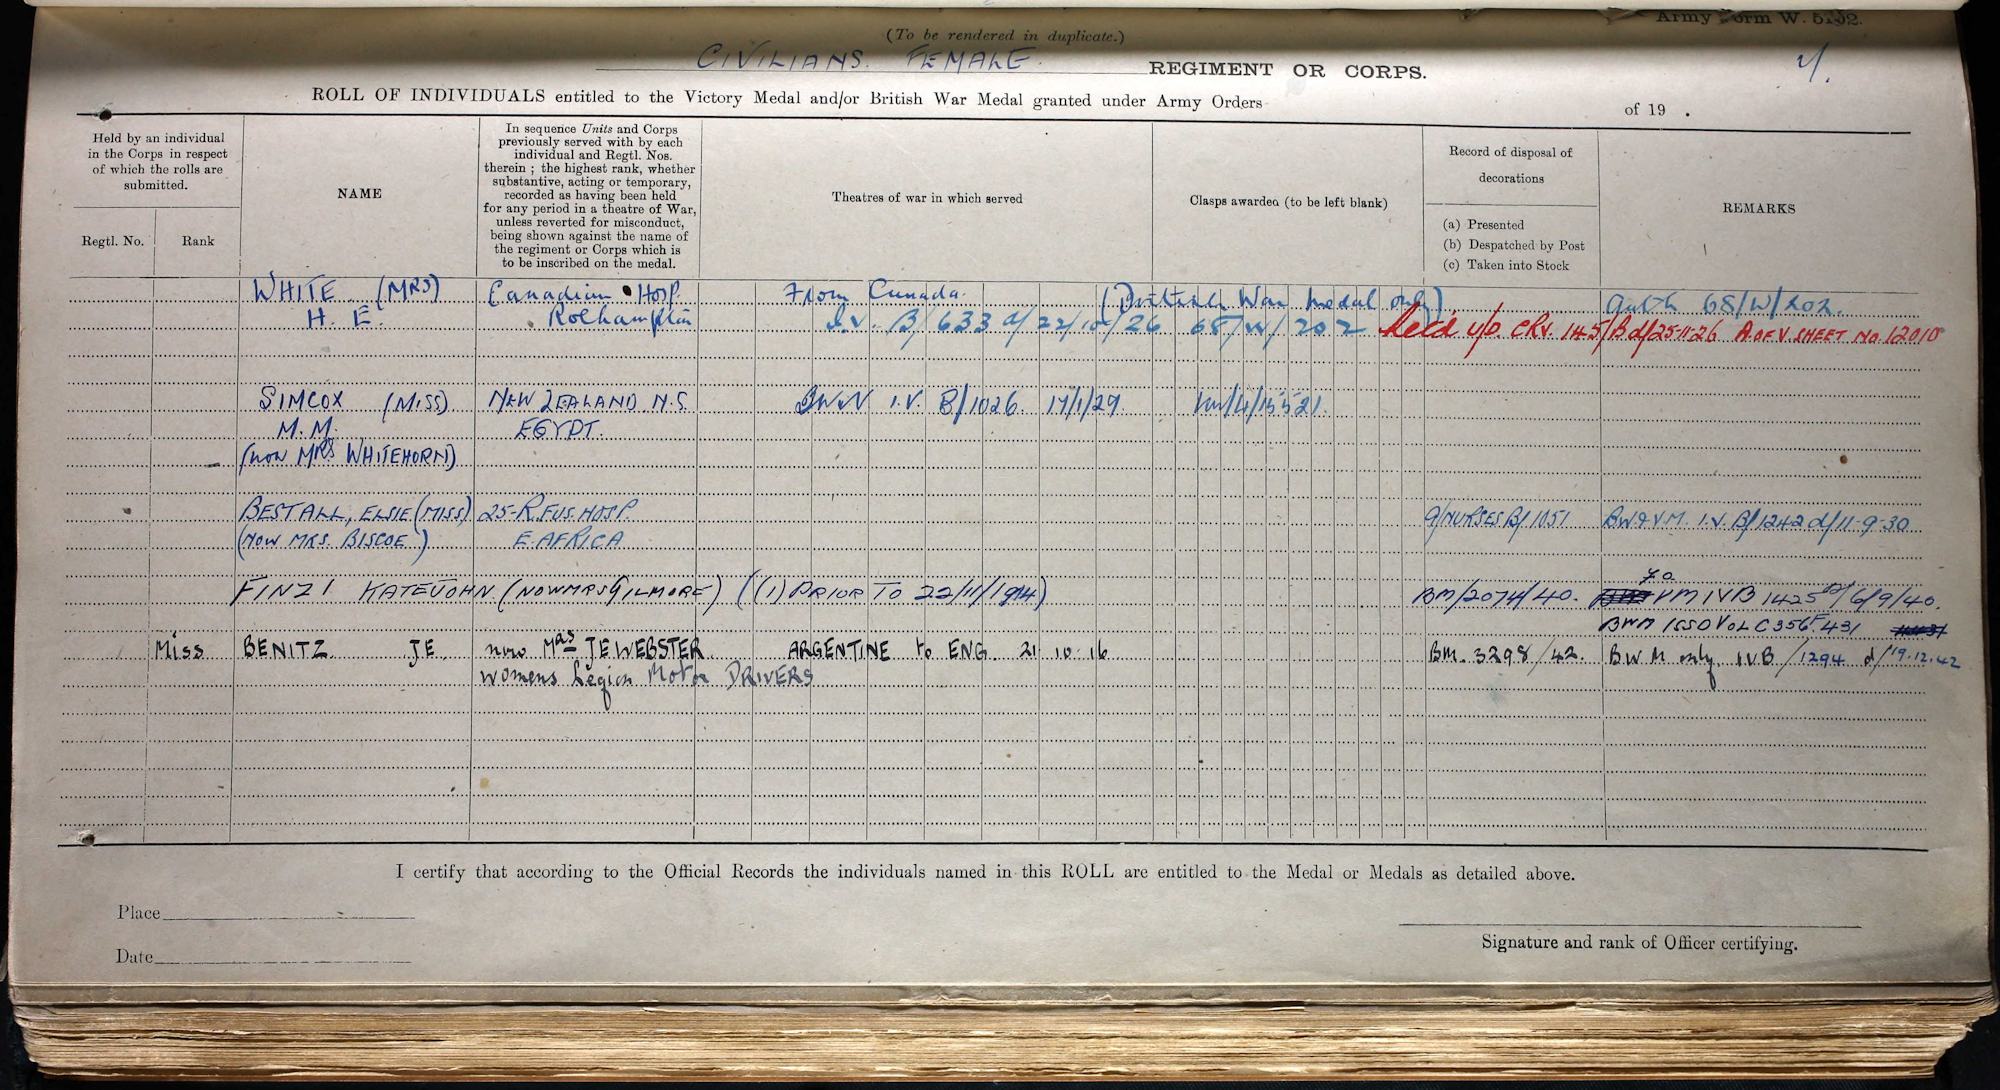 Army Form W. 5192.
(To be rendered in duplicate.)
CIVILIANS. FEMALE. REGIMENT OR CORPS.
ROLL OF INDIVIDUALS entitled to the Victory Medal and/or British War Medal granted under Army Orders of 19 .
Held by an individual
in the Corps in respect
of which the rolls are
submitted.
Regtl. No.
Rank
NAME
In sequence Units and Corps
previously served with by each
individual and Regtl. Nos.
therein ; the highest rank, whether
substantive, acting or temporary,
recorded as having been held
for any period in a theatre of War,
unless reverted for misconduct,
being shown against the name of
the regiment or Corps which is
to be inscribed on the medal.
Theatres of war in which served
Clasps awarded (to be left blank)
Record of disposal of
decorations
(a) Presented
(b) Despatched by Post
(c) Taken into Stock
REMARKS
WHITE (MRS) Canadian Hosp. From Canada. (British War Medal only) Auth 68/W/202.
H. E. Roehampton I.V. B/633 d/22/10/26 68/W/202 Recd u/o CRV. 145/B d/25.11.26 A.OF V. SHEET No. 12010
SIMCOX (MISS) NEW ZEALAND N.S. BW&V I.V. B/1026. 17/1/29.
M. M. EGYPT.
(NOW MRS WHITEHORN)
BESTALL, ELSIE (MISS) 25-R.FUS.HOSP. 9/NURSES B/1051 BW&VM. I.V. B/1242 d/11-9-30
(NOW MRS. BISCOE) E. AFRICA
FINZI KATE JOHN (NOW MRS GILMORE) ((1) PRIOR TO 22/11/1914) BM/2074/40. VM IVB 1425 d/6/9/40.
BWM ISSD VOL C356 F.431
Miss BENITZ JE now MRS JE WEBSTER ARGENTINE to ENG. 21 10 16 BM. 3298/42. BWM only IVB /1294 d/19.12.42
Womens Legion Motor DRIVERS
I certify that according to the Official Records the individuals named in this ROLL are entitled to the Medal or Medals as detailed above.
Place
Date
Signature and rank of Officer certifying.